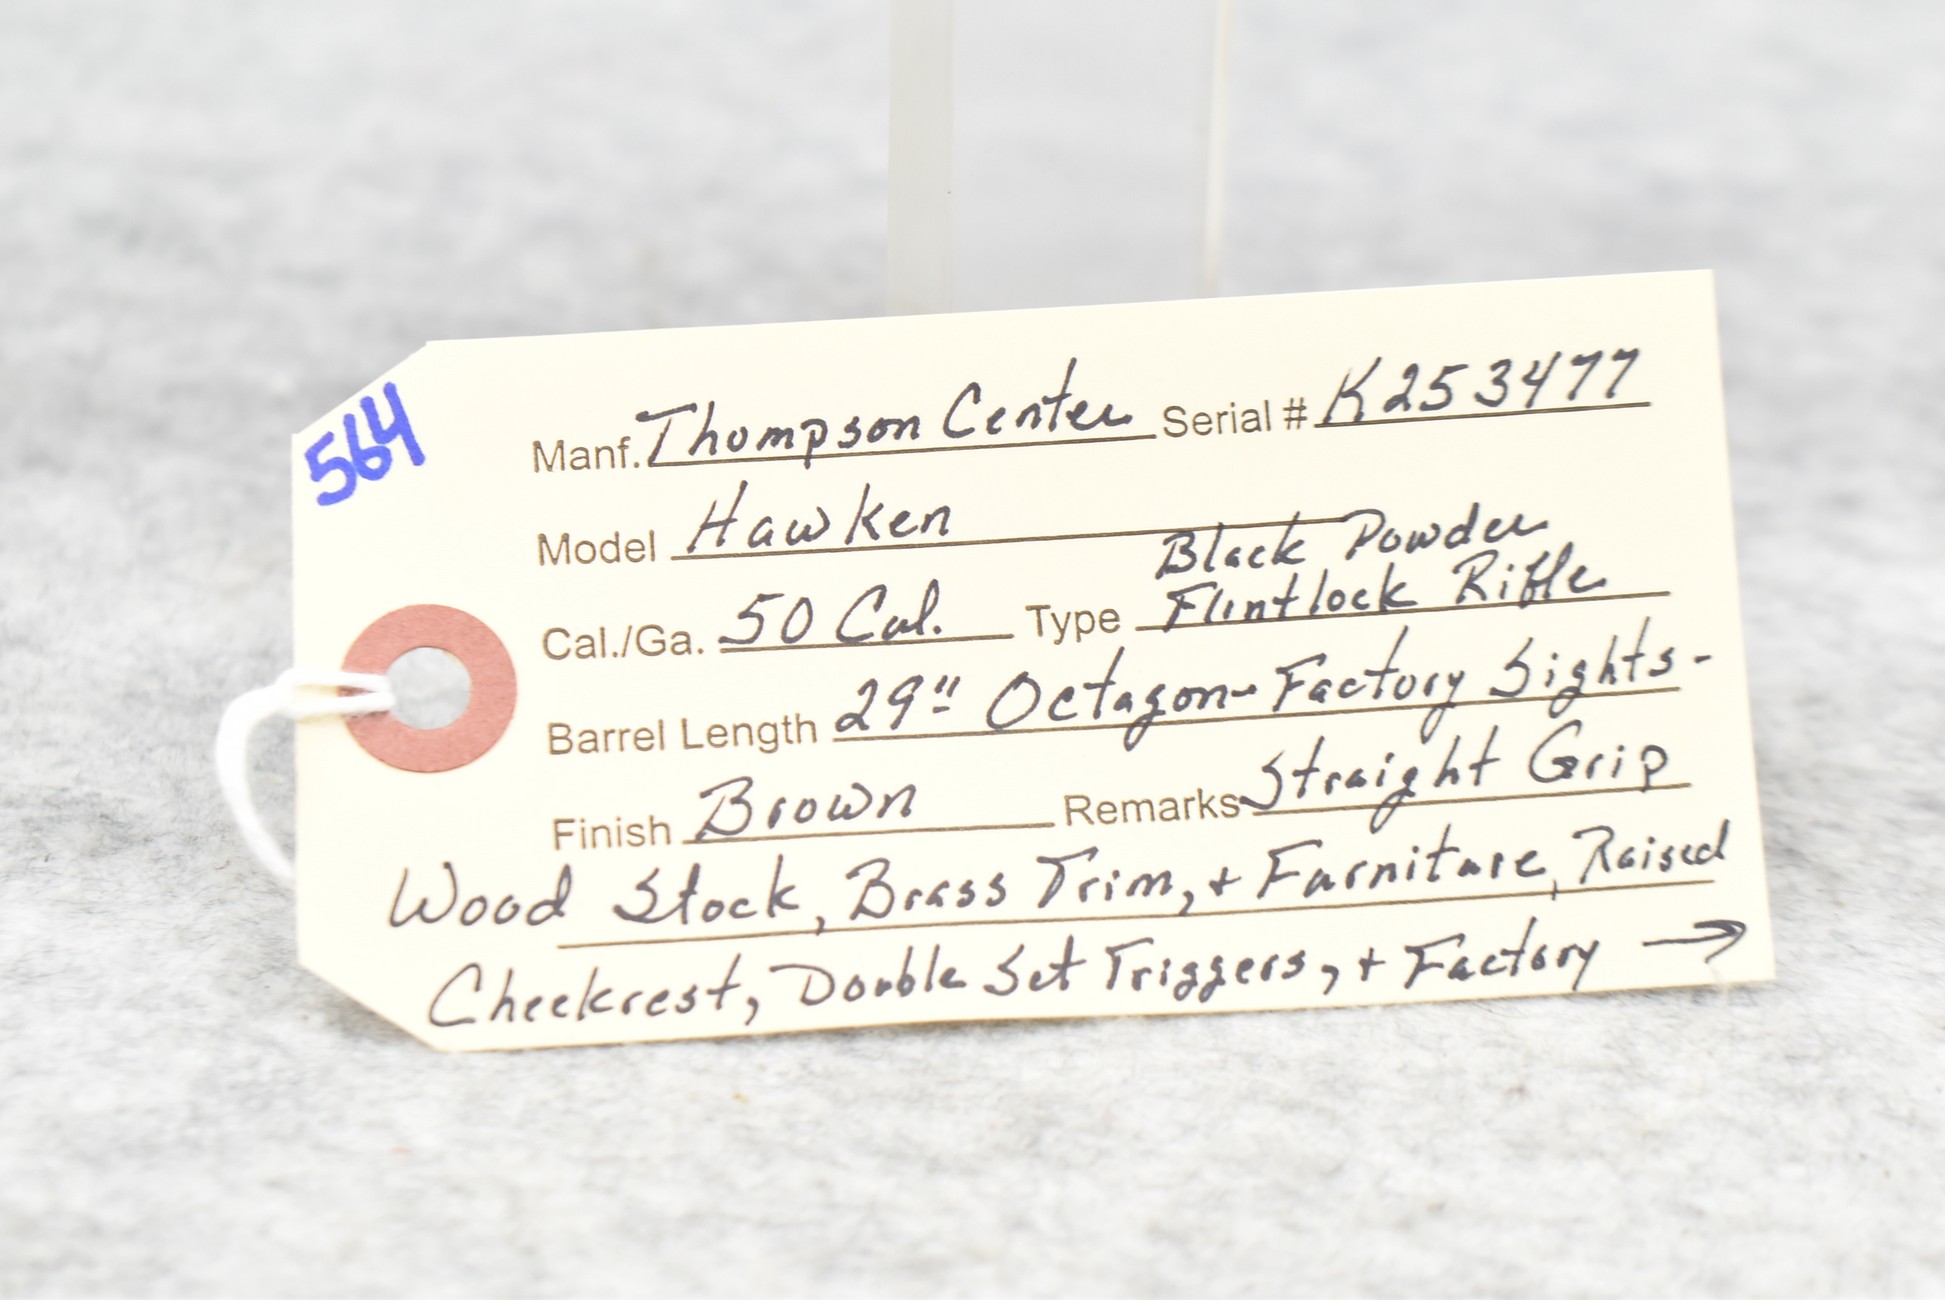 564
Manf. Thompson Center Serial # K253477
Model Hawken
Cal./Ga. 50 Cal. Type Black Powder
Flintlock Rifle
Barrel Length 29" Octagon - Factory Sights -
Finish Brown Remarks Straight Grip
Wood Stock, Brass Trim, + Furniture, Raised
Cheekrest, Double Set Triggers, + Factory →